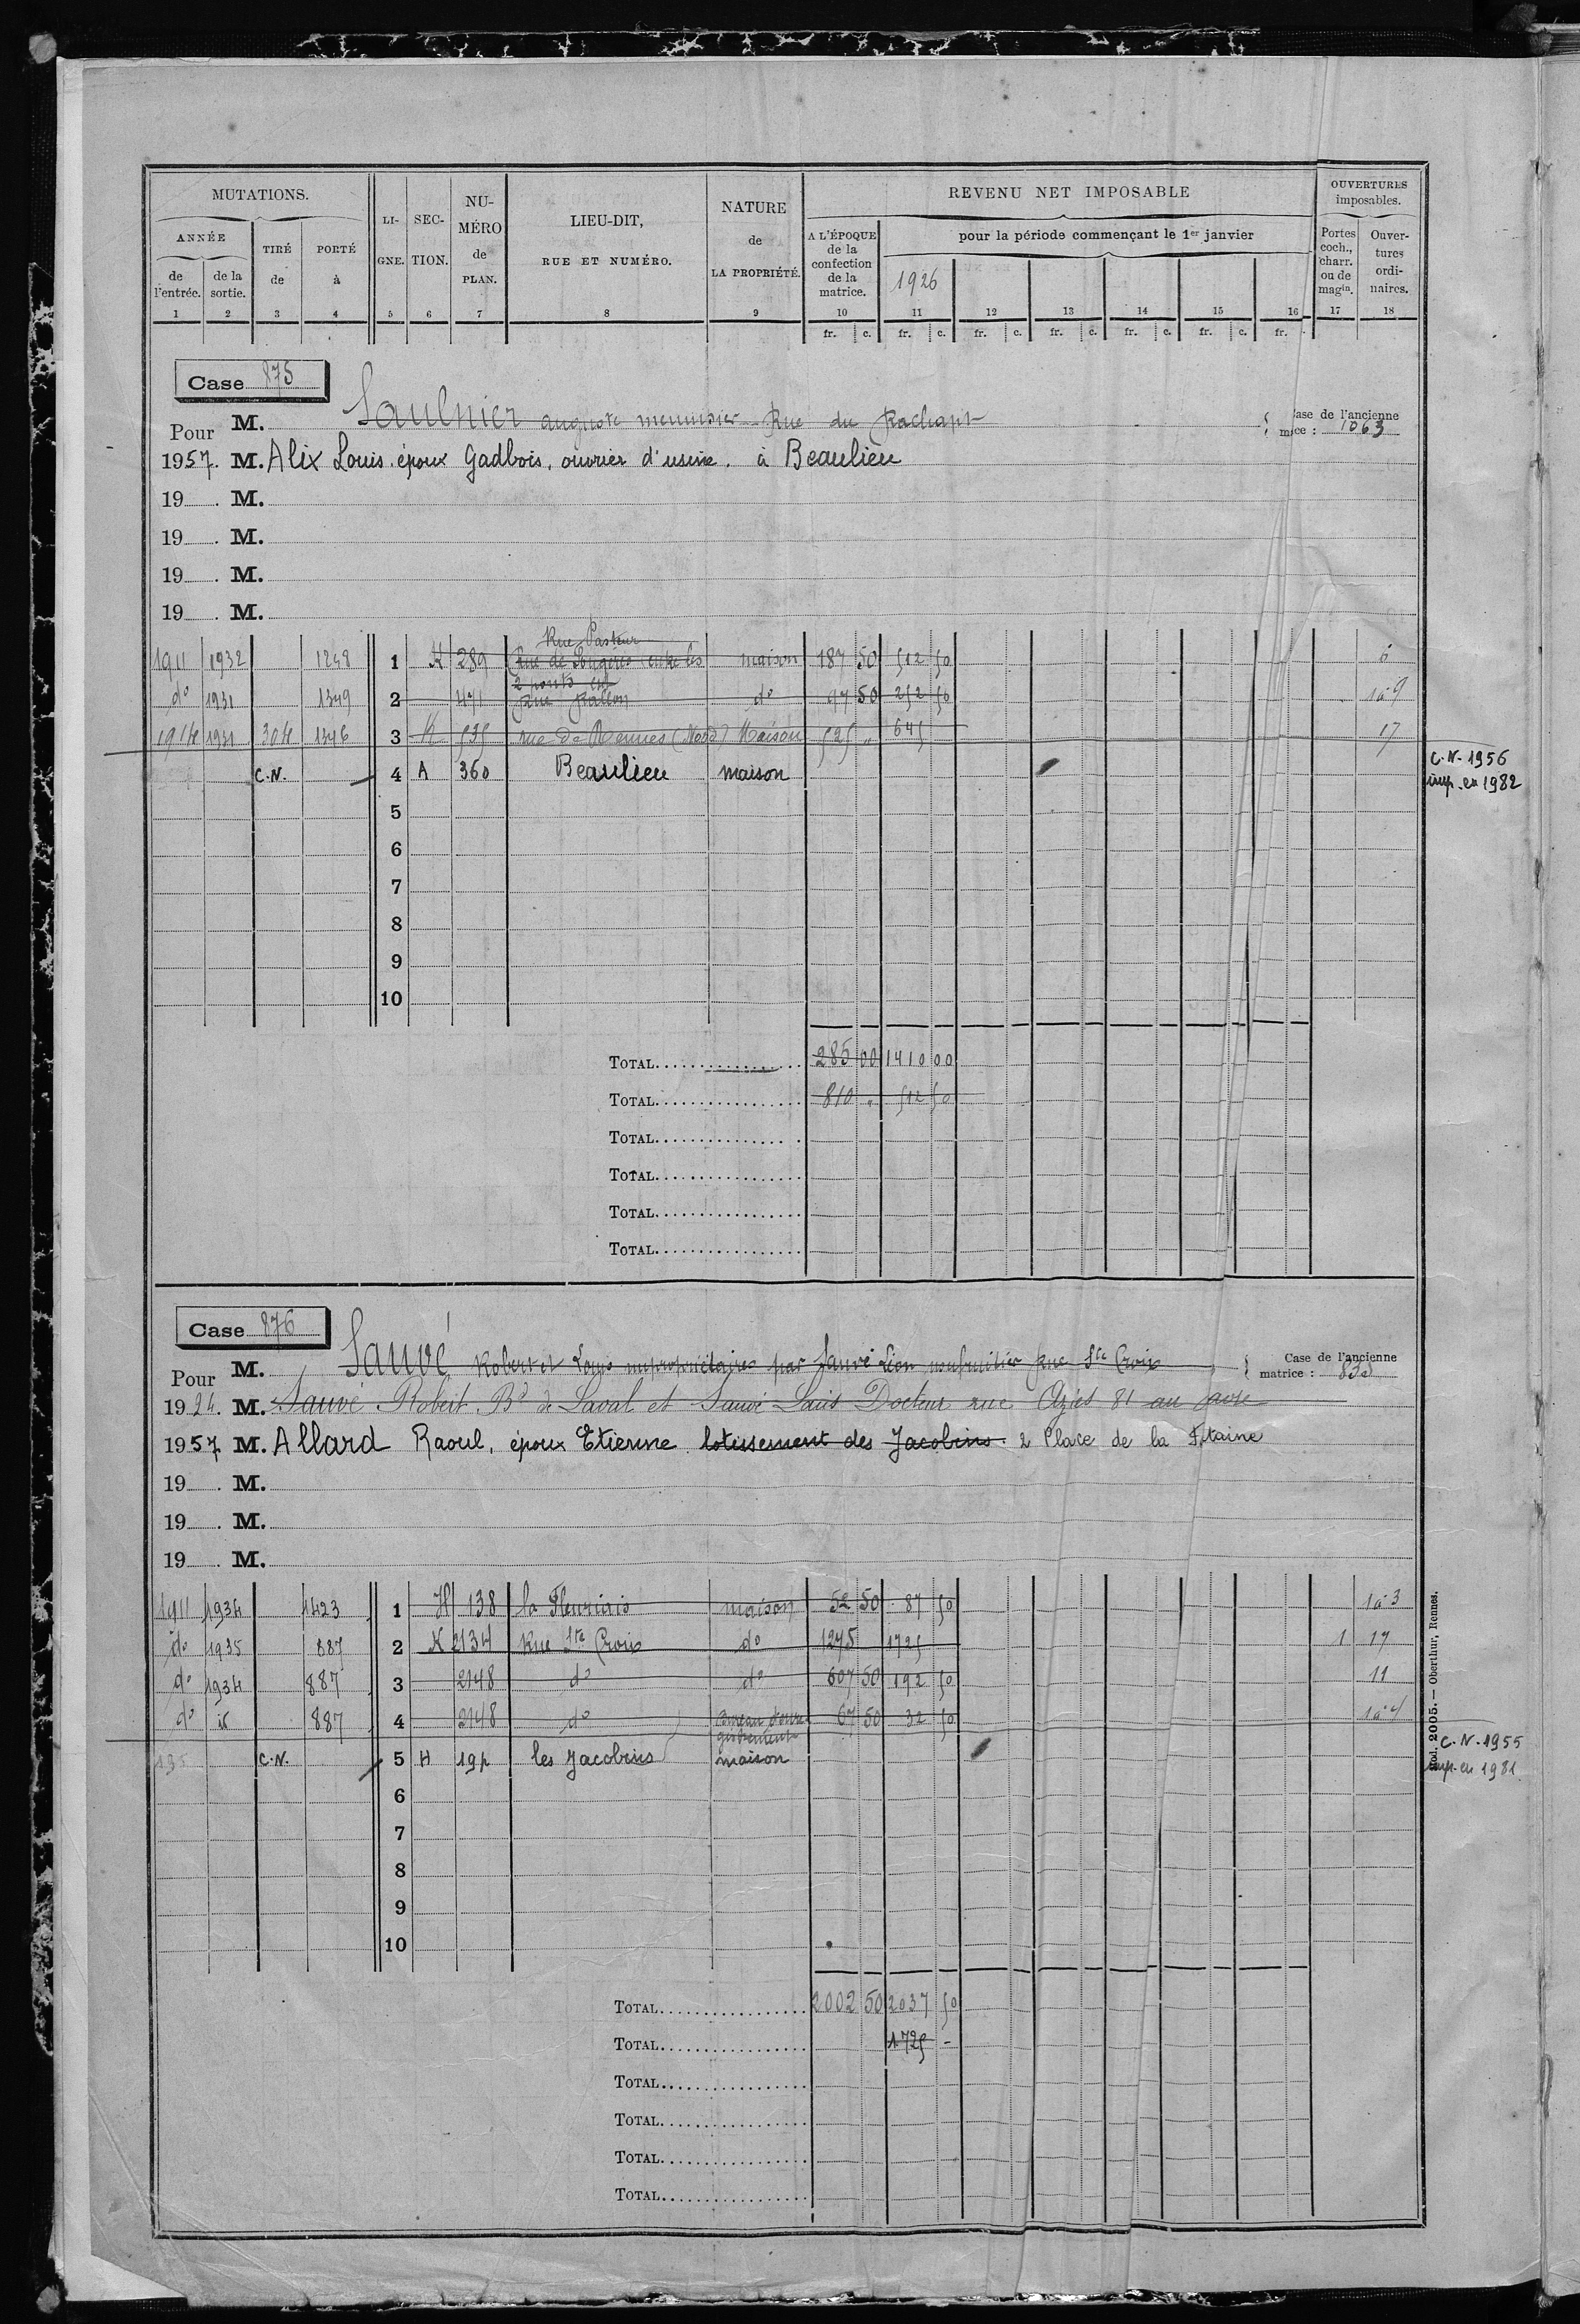 MUTATIONS.
ANNÉE
de l'entrée.
de la sortie.
TIRÉ de
PORTÉ à
LI-GNE.
SEC-TION.
NU-MÉRO de PLAN.
LIEU-DIT, RUE ET NUMÉRO.
NATURE de LA PROPRIÉTÉ.
REVENU NET IMPOSABLE
A L'ÉPOQUE de la confection de la matrice.
pour la période commençant le 1er janvier
1926
OUVERTURES imposables.
Portes coch., charr. ou de magin.
Ouver-tures ordi-naires.
1 2 3 4 5 6 7 8 9 10 11 12 13 14 15 16 17 18
fr. c. fr. c. fr. c. fr. c. fr. c. fr. c. fr.
Case 875
Pour M. Saulnier auguste menuisier Rue du Rachapt
Case de l'ancienne mce : 1063
1957. M. Alix Louis. époux Gadbois, ouvrier d'usine. à Beaulieu
19 . M.
19 . M.
19 . M.
19 . M.
Rue Pasteur
1911 1932 1248 1 K 289 Rue de Fougères entre les maison 187 50 512 50 6
2 ponts
do 1931 1349 2 471 Rue do 97 50 252 50 1 à 9
1914 1931 304 1346 3 K 535 rue de Rennes (Nord) Maison 525 " 645 17
C.N. 4 A 360 Beaulieu maison
C.N. 1956
imp. en 1982
5
6
7
8
9
10
TOTAL 285 00 1410 00
TOTAL 810 " 512 50
TOTAL
TOTAL
TOTAL
TOTAL
Case 876
Pour M. Sauvé Robert et Louis nupropriétaires par Sauvé Léon usufruitier Rue Ste Croix
Case de l'ancienne matrice :
1924. M. Sauvé Robert Bd de Laval et Sauvé Louis Docteur rue 81 au
1957 M. Allard Raoul, époux Etienne lotissement des Jacobins. 2 Place de la Ftaine
19 . M.
19 . M.
19 . M.
1911 1934 1423 1 H 138 la Fleuriais maison 52 50 87 50 1 à 3
do 1935 887 2 K 2134 Rue Ste Croix do 1275 1725 1 17
do 1934 887 3 2148 do do 607 50 192 50 11
do id 887 4 2148 do Bureau d'enregistrement 67 50 32 50 1 à 4
C.N. 5 H 19p les Jacobins maison
C.N. 1955
imp. en 1981
6
7
8
9
10
TOTAL 2002 50 2037 50
TOTAL 1725 -
TOTAL
TOTAL
TOTAL
TOTAL
Mod. 2005. — Oberthur, Rennes.